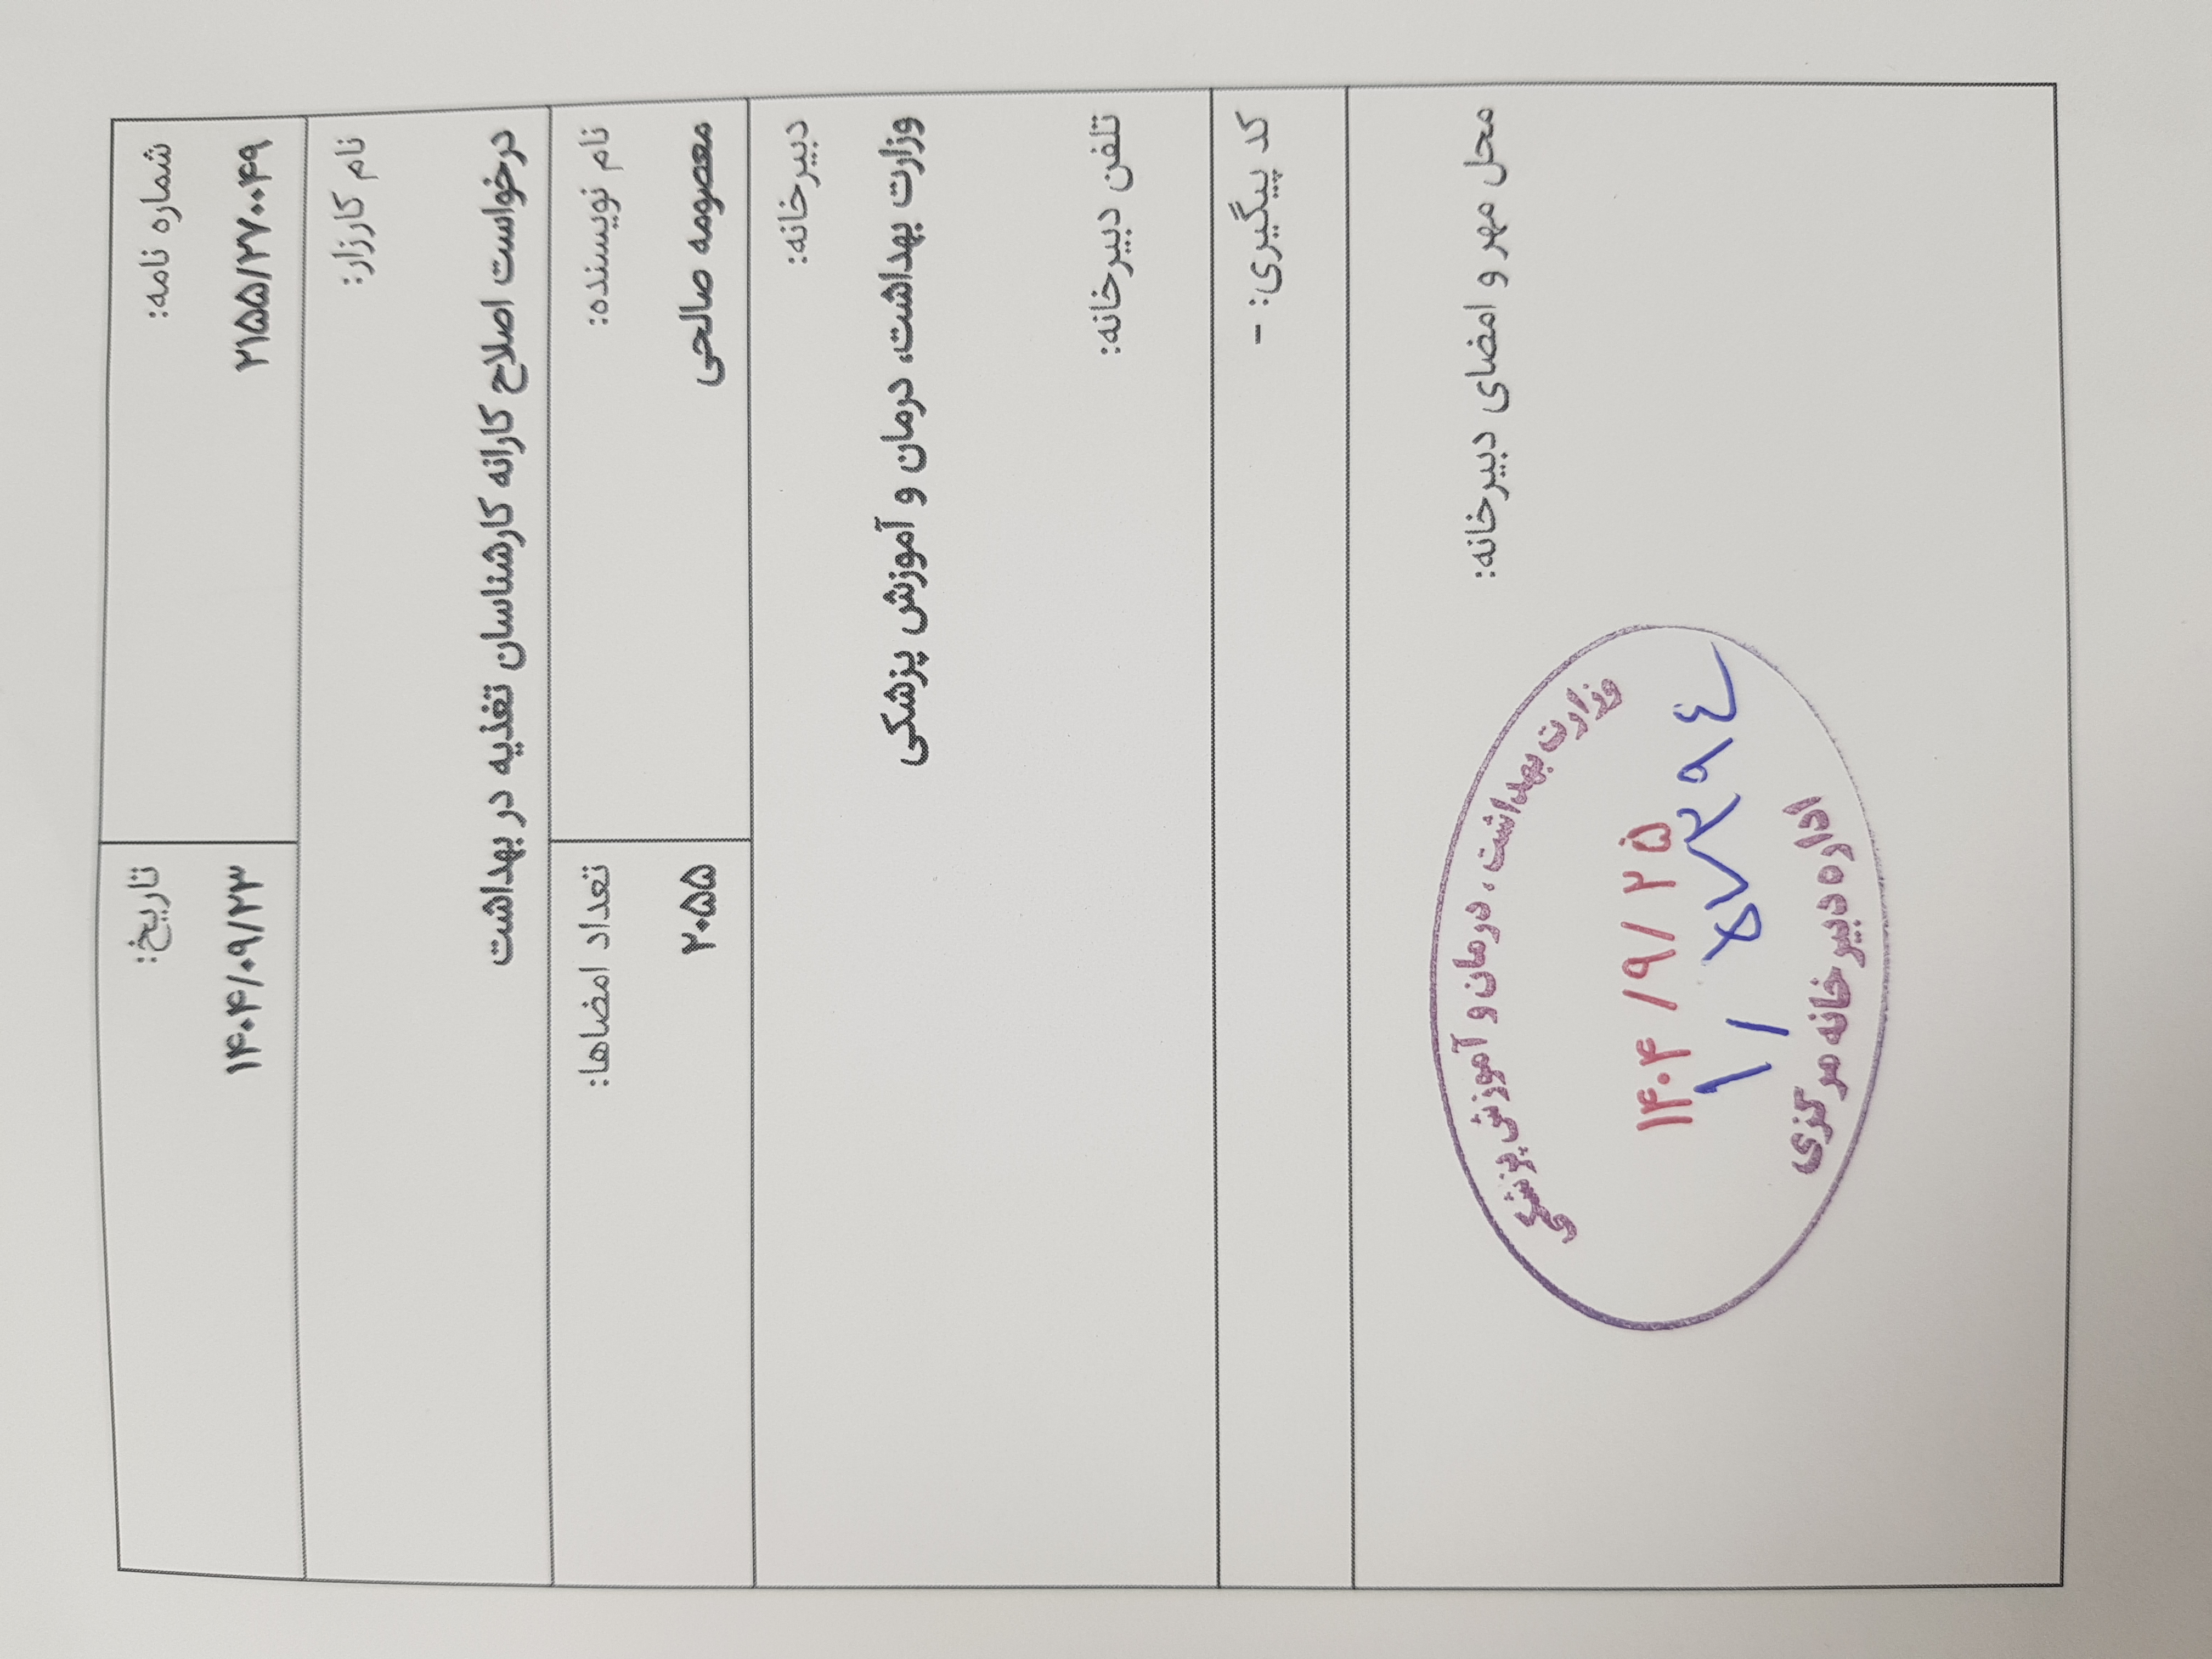 شماره نامه:
۲۱۵۵/۲۷۰۰۴۹
تاریخ:
۱۴۰۴/۰۹/۲۳
نام کارزار:
درخواست اصلاح کارانه کارشناسان تغذیه در بهداشت
نام نویسنده:
معصومه صالحی
تعداد امضاها:
۲۰۵۵
دبیرخانه:
وزارت بهداشت، درمان و آموزش پزشکی
تلفن دبیرخانه:
کد پیگیری: -
محل مهر و امضای دبیرخانه:
وزارت بهداشت ، درمان و آموزش پزشکی
۱۴۰۴/۹/۲۵
اداره دبیرخانه مرکزی